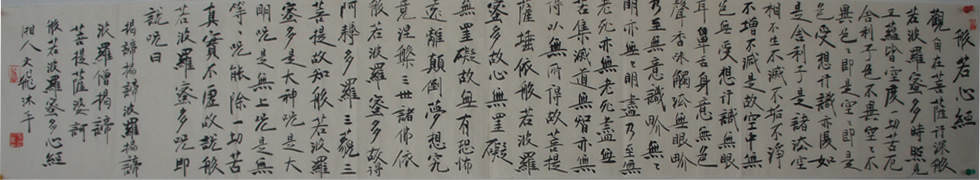 般若心經
觀自在菩薩行深般
若波羅蜜多時照見
五蘊皆空度一切苦厄
舍利子色不異空々不
異色々即是空々即是
色受想行識亦復如
是舍利子是諸法空
相不生不滅不垢不淨
不增不減是故空中無
色無受想行識無眼
耳鼻舌身意無色
聲香味觸法無眼界
乃至無意識界無々
明亦無々明盡乃至無
老死亦無老死盡無
苦集滅道無智亦無
得以無所得故菩提
薩埵依般若波羅
蜜多故心無罣礙
無罣礙故無有恐怖
遠離顛倒夢想究
竟涅槃三世諸佛依
般若波羅蜜多故得
阿耨多羅三藐三
菩提故知般若波羅
蜜多是大神咒是大
明咒是無上咒是無
等々咒能除一切苦
真實不虛故說般
若波羅蜜多咒即
說咒曰
揭諦揭諦波羅揭諦
波羅僧揭諦
菩提薩婆訶
般若波羅蜜多心經
湘人大飛沐手